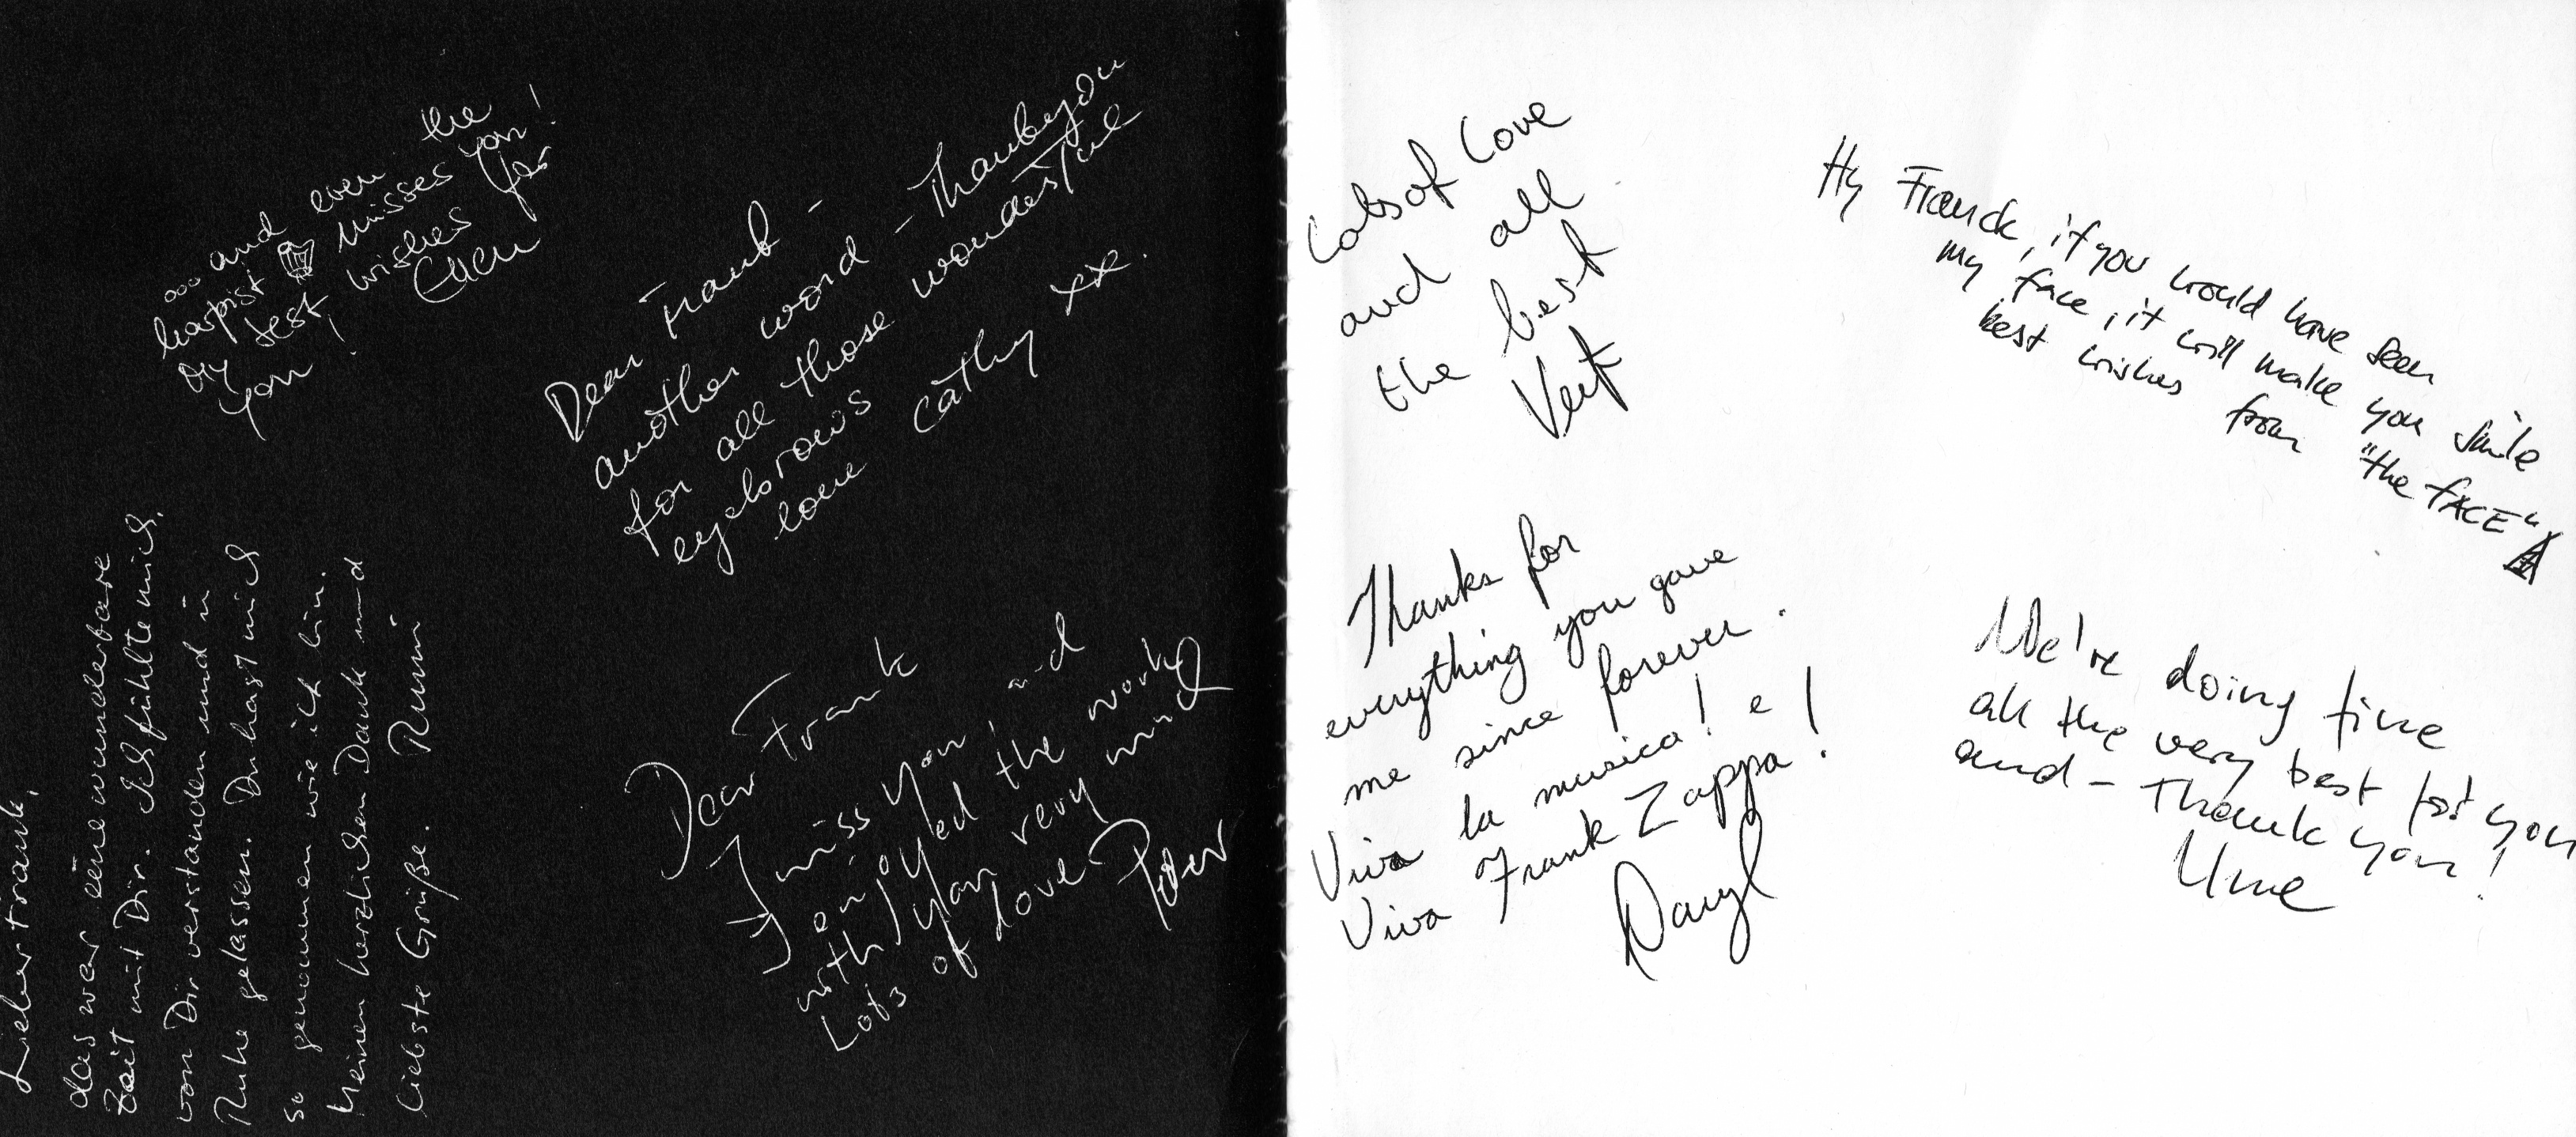 ... and even the
harpist misses you!
My best wishes for
you!
Dear Frank -
another word - Thankyou
for all those wonderful
eyebrows
love Cathy xx.
Lieber Frank,
das war eine wunderbare
Zeit mit Dir. Ich fühlte mich
von Dir verstanden und in
Ruhe gelassen. Du hast mich
so genommen wie ich bin.
Meinen herzlichen Dank und
liebste Grüße. Rumi
Dear Frank
I miss you
enjoyed the work
with you very much
Lots of love
Peter
Lots of Love
and all
the best
Veit
Hy Franck, if you would have seen
my face, it will make you smile
best wishes from "the FACE"
Thanks for
everything you gave
me since forever.
Viva la musica! e
Viva Frank Zappa!
Daryl
We're doing fine
all the very best for you
and - Thank you!
Ume